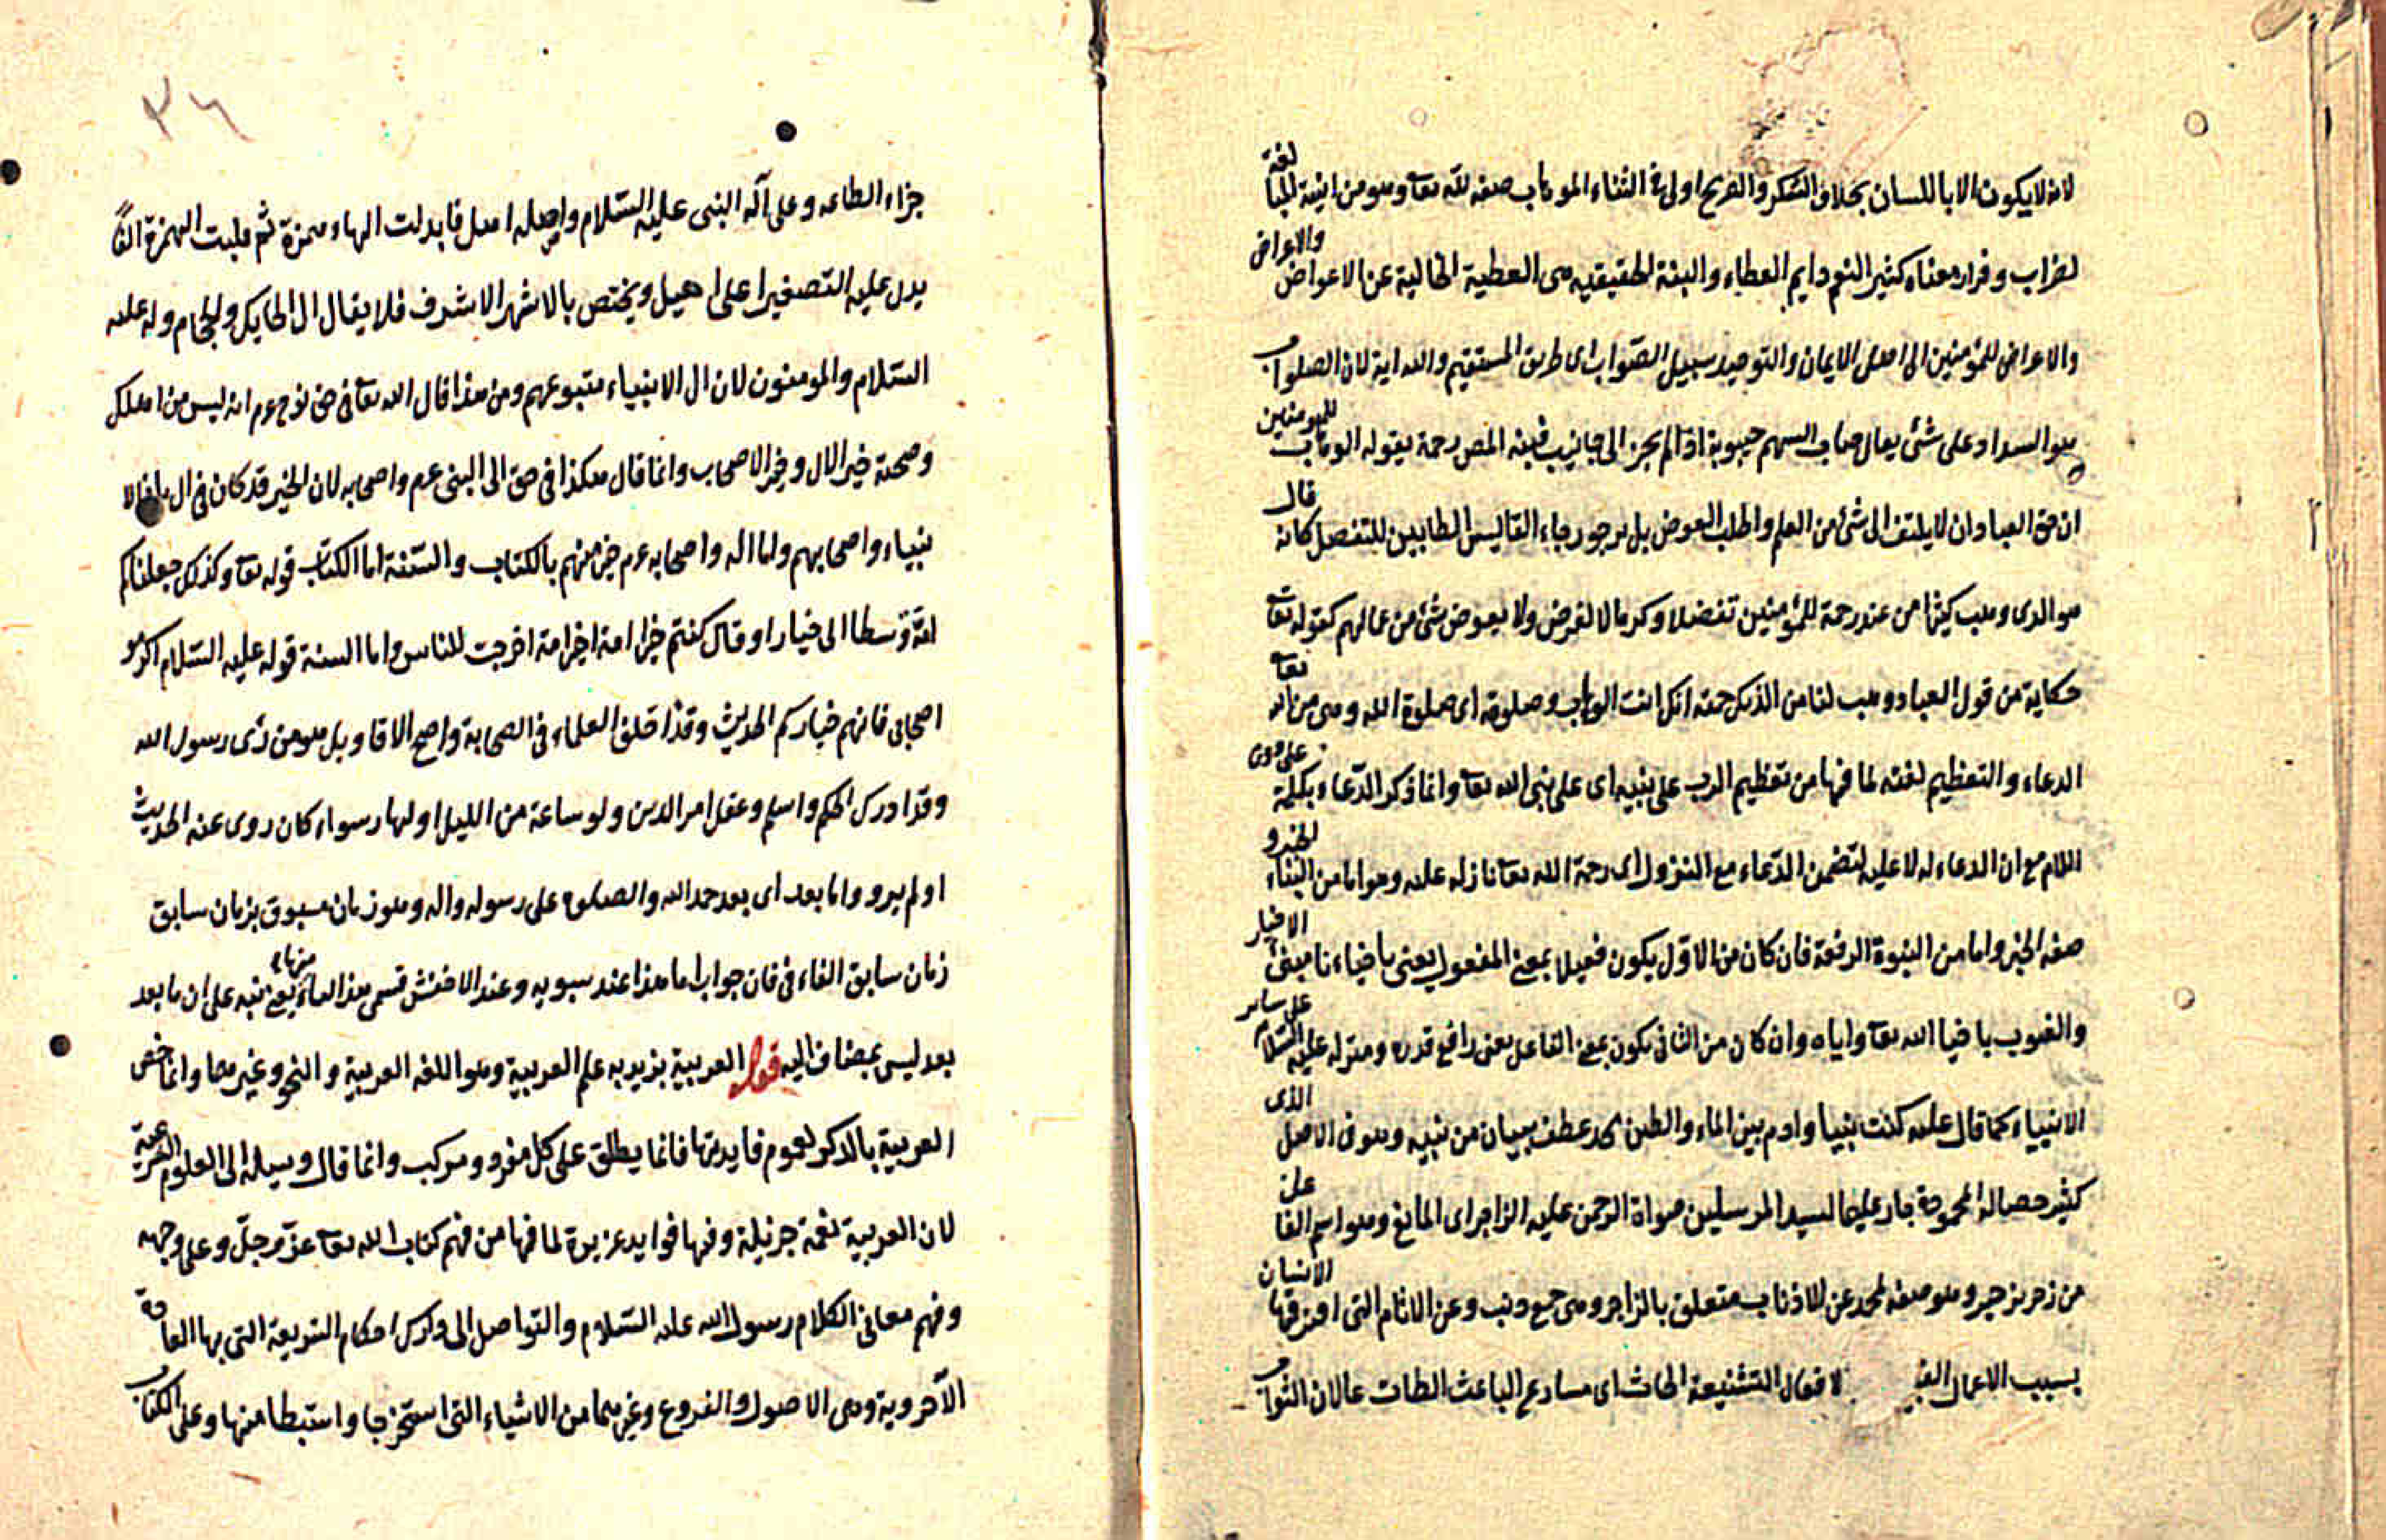 لانه لا يكون الا باللسان بخلاف الشكر والصريح اولى في الثناء الوهاب صفة لله تعا وهو من ابنية المبا لغة
لضراب وفرار معناه كثير النعم دايم العطاء والهبة الحقيقيه هى العطية الخالية عن الاعواض والاعراض
والاعراض للمؤمنين الى اهل الايمان والتوحيد سبيل الصّواب اى طريق المستقيم والله اية لان الصلواب
هو السداد على شئ يقال صاب السهم اذا لم يجز الى جانب المص رحمة بقوله الوهاب للمومنين
ان حق العباد ان لا يلتفت الى شئ من العلم واطلب العوض بل يرجو رجاء الطالبين للتفصل كانه قال
هو الذى وهب كيثرا من عند رحمة للمؤمنين تفضلا وكرما لا لغرض ولا بعوض شئ من عمالهم كقوله تعا
حكاية من قول العباد وهب لنا من لدنك رحمة انك انت الوهاب وصلوة اى صلوة الله وهى من الله تعا
الدعاء والتعظيم لغته لما فيها من تعظيم الرب على نبيه اى على نبى الله تعا وانما ذكر الدّعاء بكلمة على دون
اللام مع ان الدعاء له لا عليه لتضمن الدّعاء مع النزول اى رحمة الله تعا نازله عليه وهو اما من النباء الخبر و
صفه الخبر واما من النبوة الرفعة فان كان من الاوّل يكون فعيلا بمعنى المفعول يعنى الاخبار
والغيوب الله تعا واياه وان كان من الثانى يكون بمعنى الفاعل يعنى رافع قدره ومنزله عليه السّلام على ساير
الانبياء كما قال عليه كنت نبيا وادم بين الماء والطين محمد عطف بيان من نبيه وهو فى الاصل الذى
كثير خصاله المحمودة السيد المرسلين صلواة الرحمن عليه الزاجر اى المانع وهو اسم الفا عل
من زجر يزجر وهو صفه لمحمد عن الاذناب متعلق بالزاجر وهى جمع ذنب وعن الاثام التى الانسان
بسبب الاعمال لافعال التشنيعة الحاث اى مسارع الباعث الطات
٣٦
جزاء الطاعه وعلى آله النبى عليه السّلام واصله اهل فابدلت الهاء همزة ثم قلبت الهمزة الفاً
يدل عليه التصغير اعلى اهيل ويختص بالاشهر الاشرف فلا يقال ال الحايك والحجام وله عليه
السّلام والمومنون لان ال الانبياء متبوعهم ومن هذا قال الله تعا فى حق نوح عم انه ليس من اهلك
وصحبة خير الال وخير الاصحاب وانما قال هكذا فى حق الى النبى عم واصحابه لان الخير قد كان فى ال الا
نبياء واصحابهم واما اله واصحابه عم خير منهم بالكتاب والسّنة اما الكتاب قوله تعا وكذلك جعلناكم
امّة وّسطا الى خيارا وقال كنتم خير امة اخرجت للناس واما السنة قوله عليه السّلام اكرموا
اصحابى فانهم خياركم الحديث وقد اختلف العلماء فى الصحابة واصح الاقاويل هو من رٰى رسول الله
وقد ادرك الحكم واسلم وعقل امر الدين ولو ساعة من الليل او لنهار سواء كان روى عنه الحديث
او لم يرو واما بعد اى بعد حمد الله والصلوه على رسوله واله وهو زمان مسبوق بزمان سابق
زمان سابق الفاء فى فان جواب اما هذا عند سبويه وعند الاخفش قسمى هذا الفاء منبها يعنى نبه على ان ما بعد
بعد ليس بمضاف اليه قوله العربية يزيد به علم العربية وهو اللغه العربية والنحو وغيرهما وانما خص
العربية بالذكر لعموم فايدتها فانما يطلق على كل مفرد ومركب وانما قال وسيلة الى العلوم الشرعية
لان العربية نعمة جزيلة وفيها فوايد عزيزة لما فيها من فهم كتاب الله تعا عزّ وجلّ وعلى وجهه
وفهم معانى الكلام رسول الله عليه السّلام والتواصل الى درك احكام الشريعة التى بها السعادة
الآخروية وهى الاصول والفروع وغيرهما من الاشياء التى استخرجا واستبطا منها وعلى الكتاب